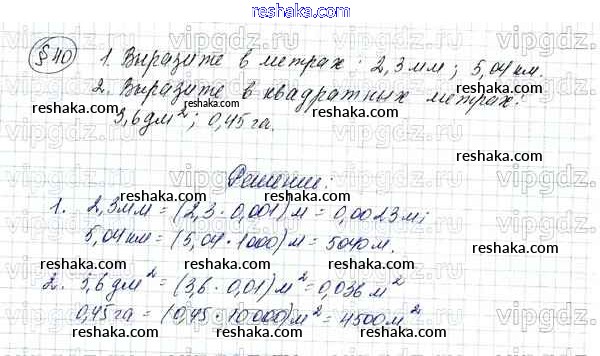 reshaka.com
§40 1. Выразите в метрах: 2,3 мм; 5,04 км.
2. Выразите в квадратных метрах:
3,6 дм²; 0,45 га.
Решение:
1. 2,3 мм = (2,3 · 0,001) м = 0,0023 м;
5,04 км = (5,04 · 1000) м = 5040 м.
2. 3,6 дм² = (3,6 · 0,01) м² = 0,036 м²
0,45 га = (0,45 · 10 000) м² = 4500 м²
reshaka.com